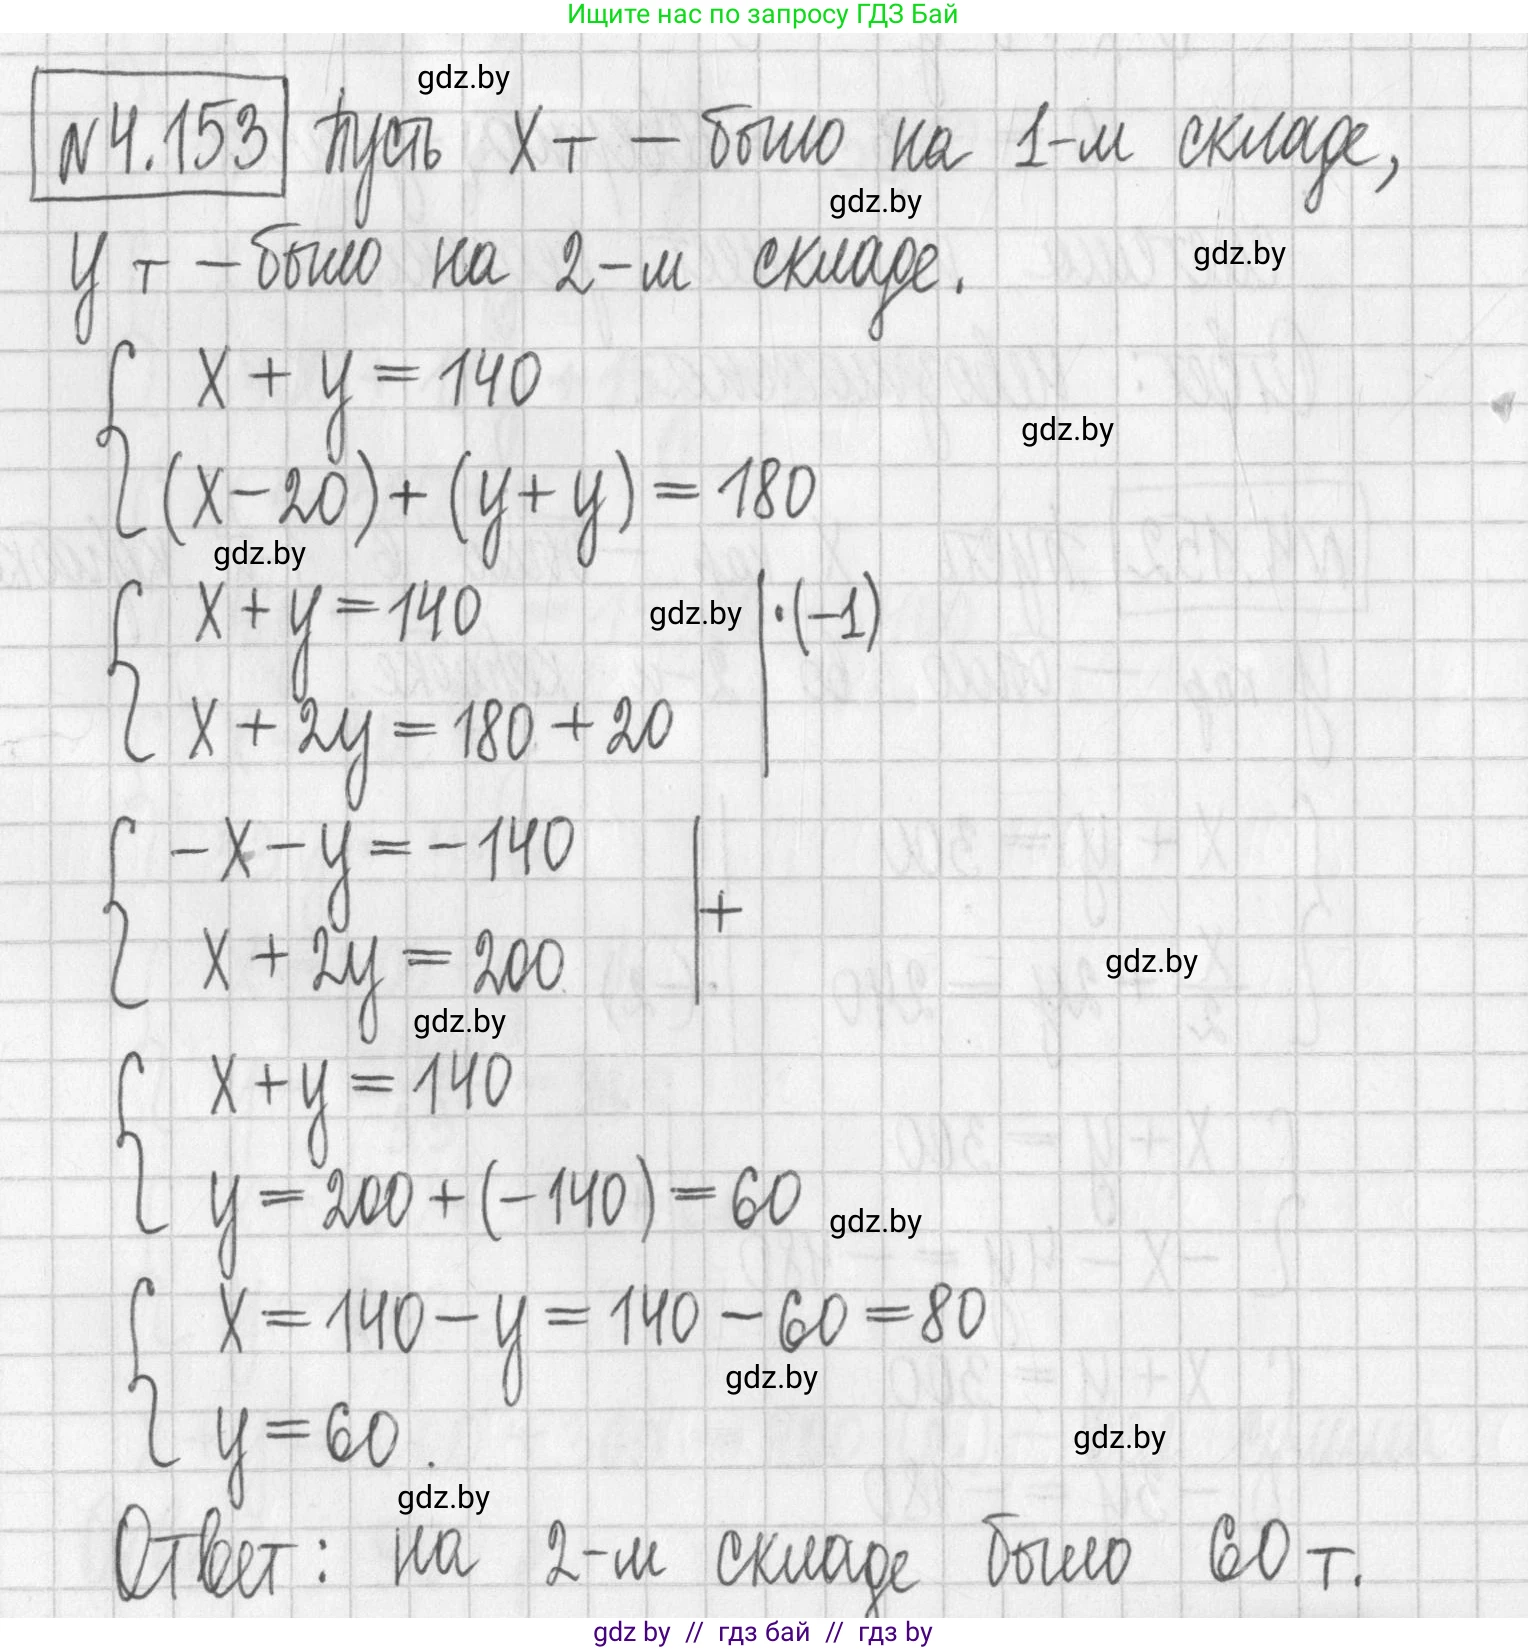 Ищите нас по запросу ГДЗ Бай
gdz.by
№4.153 Пусть x т – было на 1-м складе,
gdz.by
y т – было на 2-м складе.
gdz.by
x + y = 140
gdz.by
(x – 20) + (y + y) = 180
gdz.by
x + y = 140 | · (–1)
gdz.by
x + 2y = 180 + 20
–x – y = –140
+
x + 2y = 200
gdz.by
gdz.by
x + y = 140
y = 200 + (–140) = 60
gdz.by
x = 140 – y = 140 – 60 = 80
gdz.by
y = 60.
gdz.by
gdz.by
Ответ: на 2-м складе было 60 т.
gdz by // гдз бай // гдз by